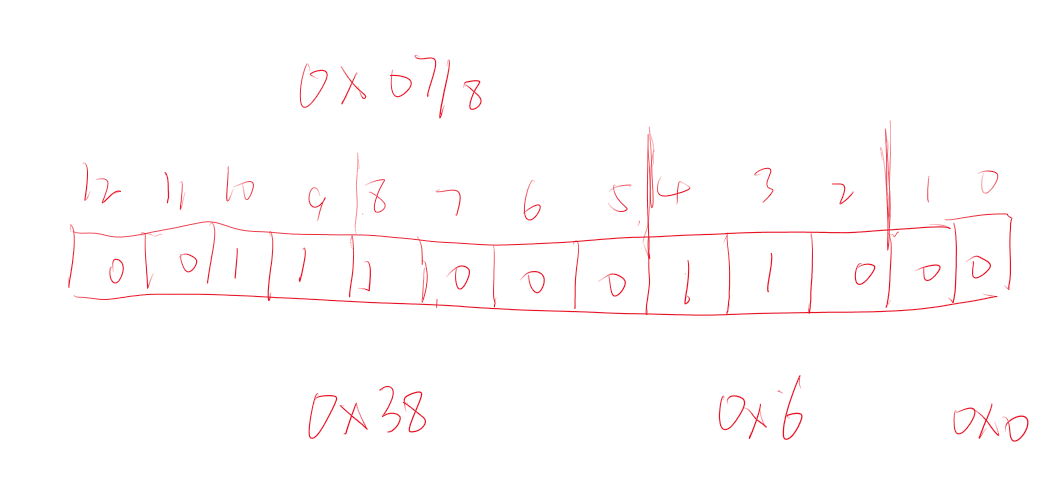 0x0718
12 11 10 9 8 7 6 5 4 3 2 1 0
0 0 1 1 1 0 0 0 1 1 0 0 0
0x38 0x6 0x0